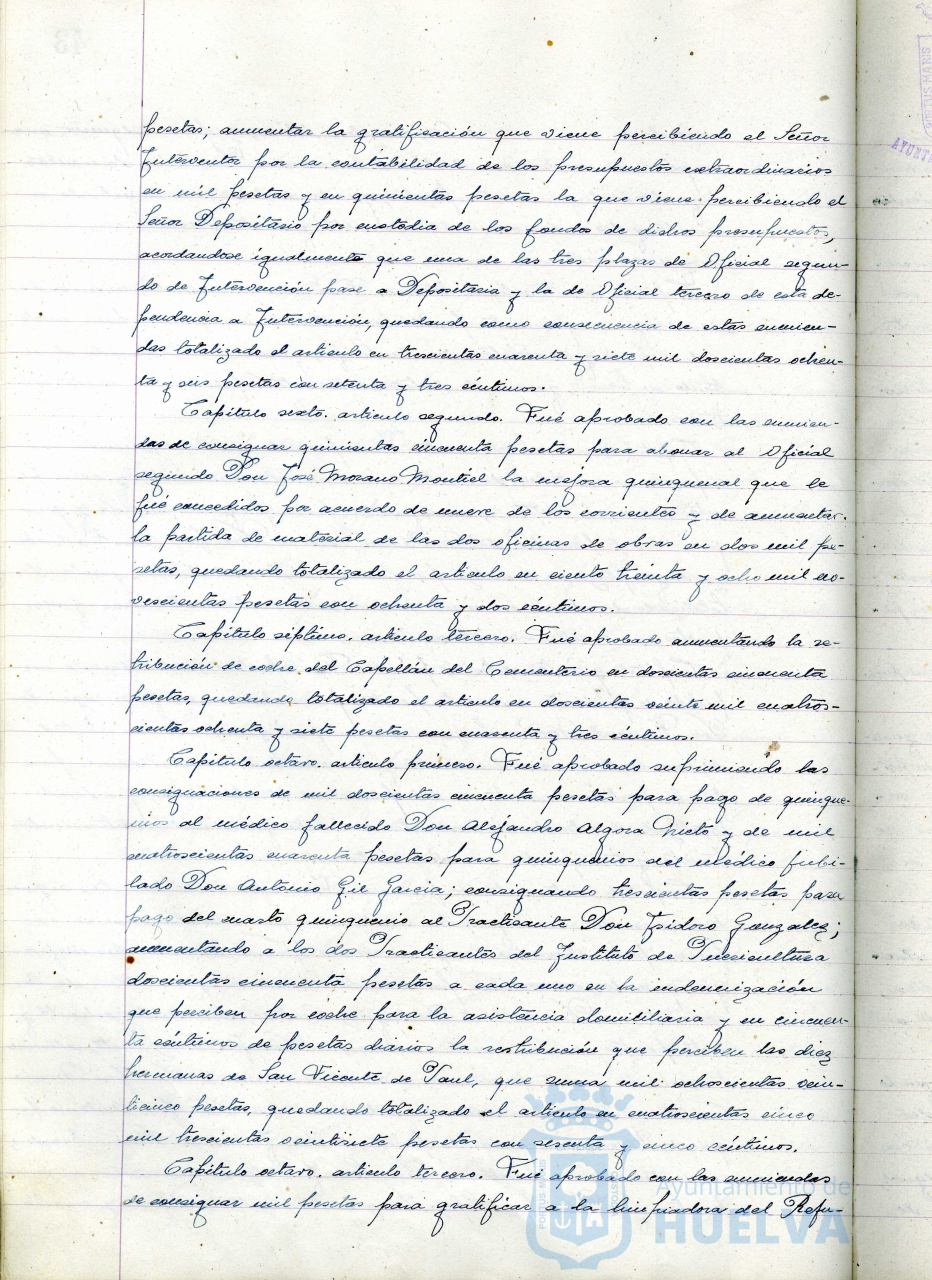 pesetas; aumentar la gratificación que viene percibiendo el Señor
Interventor por la contabilidad de los presupuestos extraordinarios
en mil pesetas y en quinientas pesetas la que viene percibiendo el
Señor Depositario por custodia de los fondos de dichos presupuestos,
acordandose igualmente que una de las tres plazas de Oficial segun-
do de Intervención pase a Depositaria y la de Oficial tercero de esta de-
pendencia a Intervención, quedando como consecuencia de estas enmien-
das totalizado el articulo en trescientas cuarenta y siete mil doscientas ochen-
ta y seis pesetas con setenta y tres céntimos.
Capitulo sexto. articulo segundo. Fué aprobado con las enmien-
das de consignar quinientas cincuenta pesetas para abonar al Oficial
segundo Don José Morano Montiel la mejora quinquenal que le
fué concedidos por acuerdo de nueve de los corrientes y de aumentar
la partida de material de las dos oficinas de obras en dos mil pe-
setas, quedando totalizado el articulo en ciento treinta y ocho mil no-
vescientas pesetas con ochenta y dos céntimos.
Capitulo séptimo. articulo tercero. Fué aprobado aumentando la re-
tribución de coche del Capellán del Cementerio en doscientas cincuenta
pesetas, quedando totalizado el articulo en doscientas veinte mil cuatros-
cientas ochenta y siete pesetas con cuarenta y tres céntimos.
Capitulo octavo. articulo primero. Fué aprobado suprimiendo las
consignaciones de mil doscientas cincuenta pesetas para pago de quinque-
nios al médico fallecido Don Alejandro Algora Nieto y de mil
cuatroscientas cuarenta pesetas para quinquenios del médico jubi-
lado Don Antonio Gil Garcia; consignando trescientas pesetas para
pago del cuarto quinquenio al Practicante Don Isidoro Gonzalez;
aumentando a los dos Practicantes del Instituto de Puericultura
doscientas cincuenta pesetas a cada uno en la indemnización
que perciben por coche para la asistencia domiciliaria y en cincuen-
ta céntimos de pesetas diarios la retribución que perciben las diez
hermanas de San Vicente de Paul, que suma mil ochoscientas vein-
ticinco pesetas, quedando totalizado el articulo en cuatroscientas cinco
mil trescientas veintisiete pesetas con sesenta y cinco céntimos.
Capitulo octavo. articulo tercero. Fué aprobado con las enmiendas
de consignar mil pesetas para gratificar a la limpiadora del Refu-
Ayuntamiento de
HUELVA